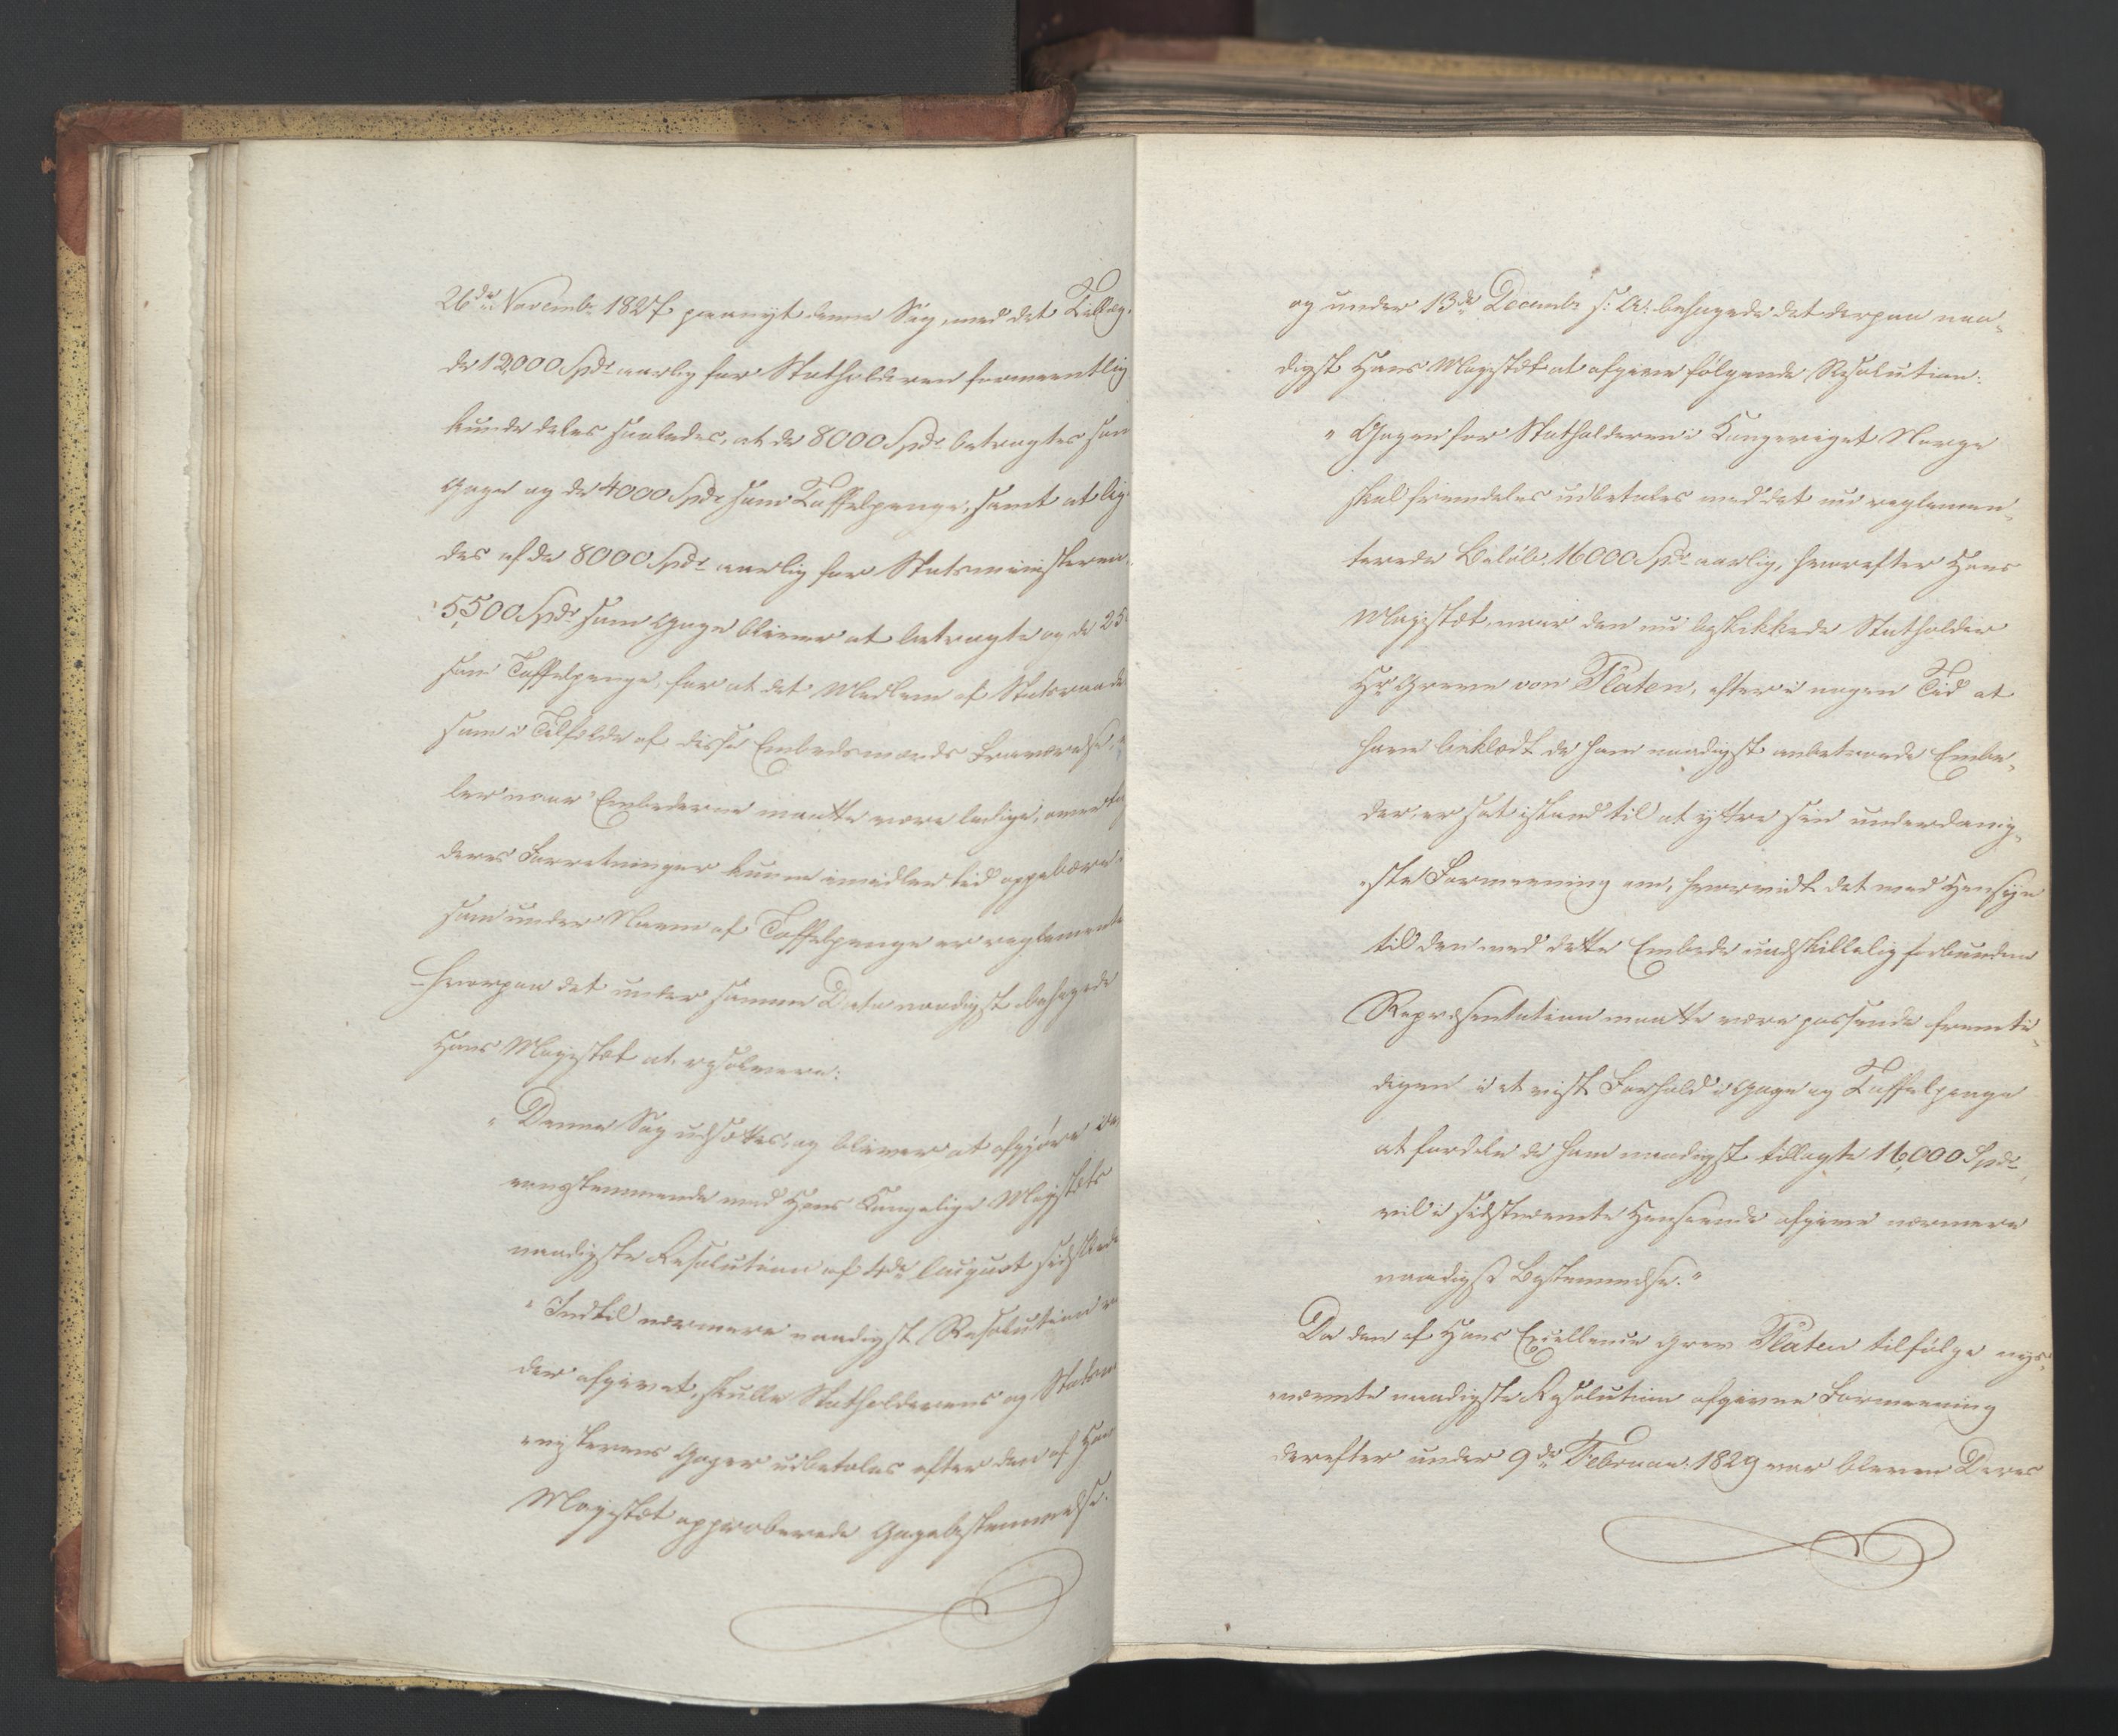 26de Novembr 1827 paanyt denne Sag, med det Tillæg,
de 12000 Spdr aarlig for Statholderen formeentlig
kunde deles saaledes, at de 8000 Spdr betragtes som
Gage og de 4000 Spdr som Taffelpenge, samt at lige
des af de 8000 Spdr aarlig for Statsministeren
5,500 Spdr som Gage bliver at betragte og de 25
som Taffelpenge, for at det Medlem af Statsraade
som i Tilfælde af disse Embedsmænds Fraværelse,
ler naar Embederne maatte være ledige,
deres Forretninger kunne imidlertid oppebære
som under Navn af Taffelpenge er reglemente
hvorpaa det under samme Dato naadigst behagede
Hans Majestæt at resolvere:
„Denne Sag udsættes, og bliver at afgjøre o
eensstemmende med Hans Kongelige Majestæts
naadigste Resolution af 4de August sidstleden
„Indtil nærmere naadigst Resolution
der afgivet, skulle Statholderens og Statsmi
nisterens Gager udbetales efter den af Hans
Majestæt approberede Gagebestemmelse.
og under 13de Decembr s: A: behagede det derpaa naa-
digst Hans Majestæt at afgive følgende Resolution:
„Gagen for Statholderen i Kongeriget Norge
skal fremdeles udbetales med det nu reglemen-
terede Beløb, 16000 Spdr aarlig, hvorefter Hans
Majestæt, naar den nu beskikkede Statholder
Hr Greve von Platen, efter i nogen Tid at
have beklædt de ham naadigst anbetroede Embe-
der, er sat istand til at yttre sin underdanig-
ste Formeening om, hvorvidt det med Hensyn
til den med dette Embede uadskillelig forbundne
Repræsentation maatte være passende fremti-
digen i et vist Forhold i Gage og Taffelpenge
at fordele de ham naadigst tillagte 16,000 Spdr
vil i sidstnævnte Henseende afgive nærmere
naadigst Bestemmelse."
Da den af Hans Excellence Grev Platen tilfølge nys-
nævnte naadigste Resolution afgivne Formeening
derefter under 9de Februar 1829 var bleven Deres